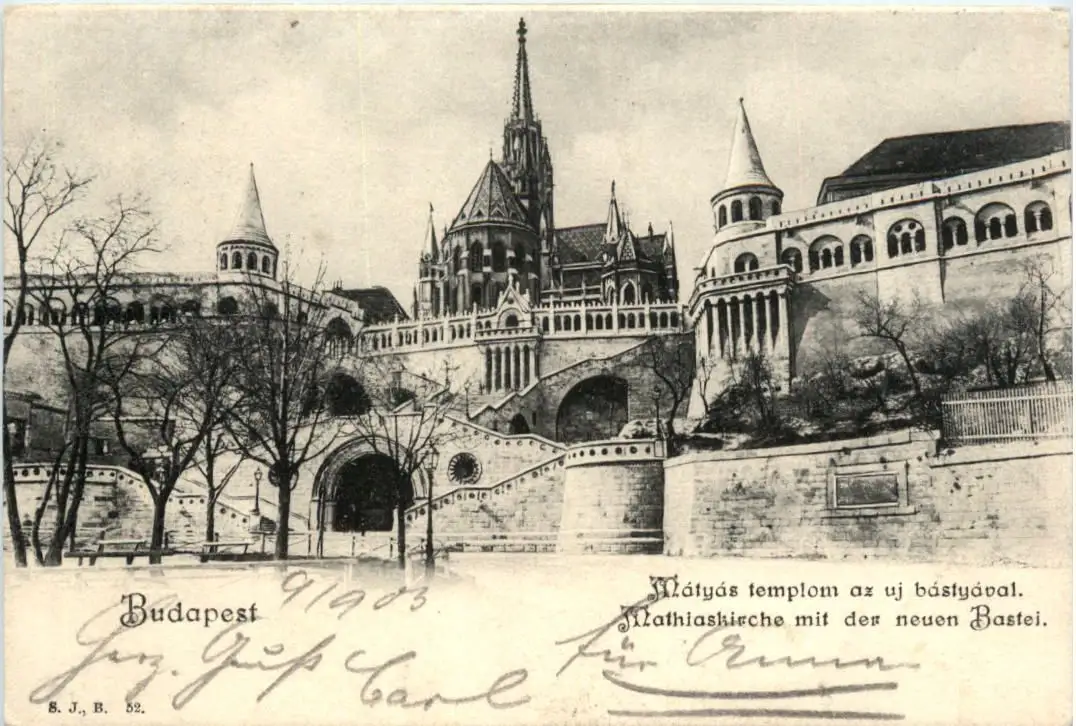 Budapest
9/9 03
Mátyás templom az uj bástyával.
Mathiaskirche mit der neuen Bastei.
Herz. Gruß Carl
für Anna
S. J., B. 52.